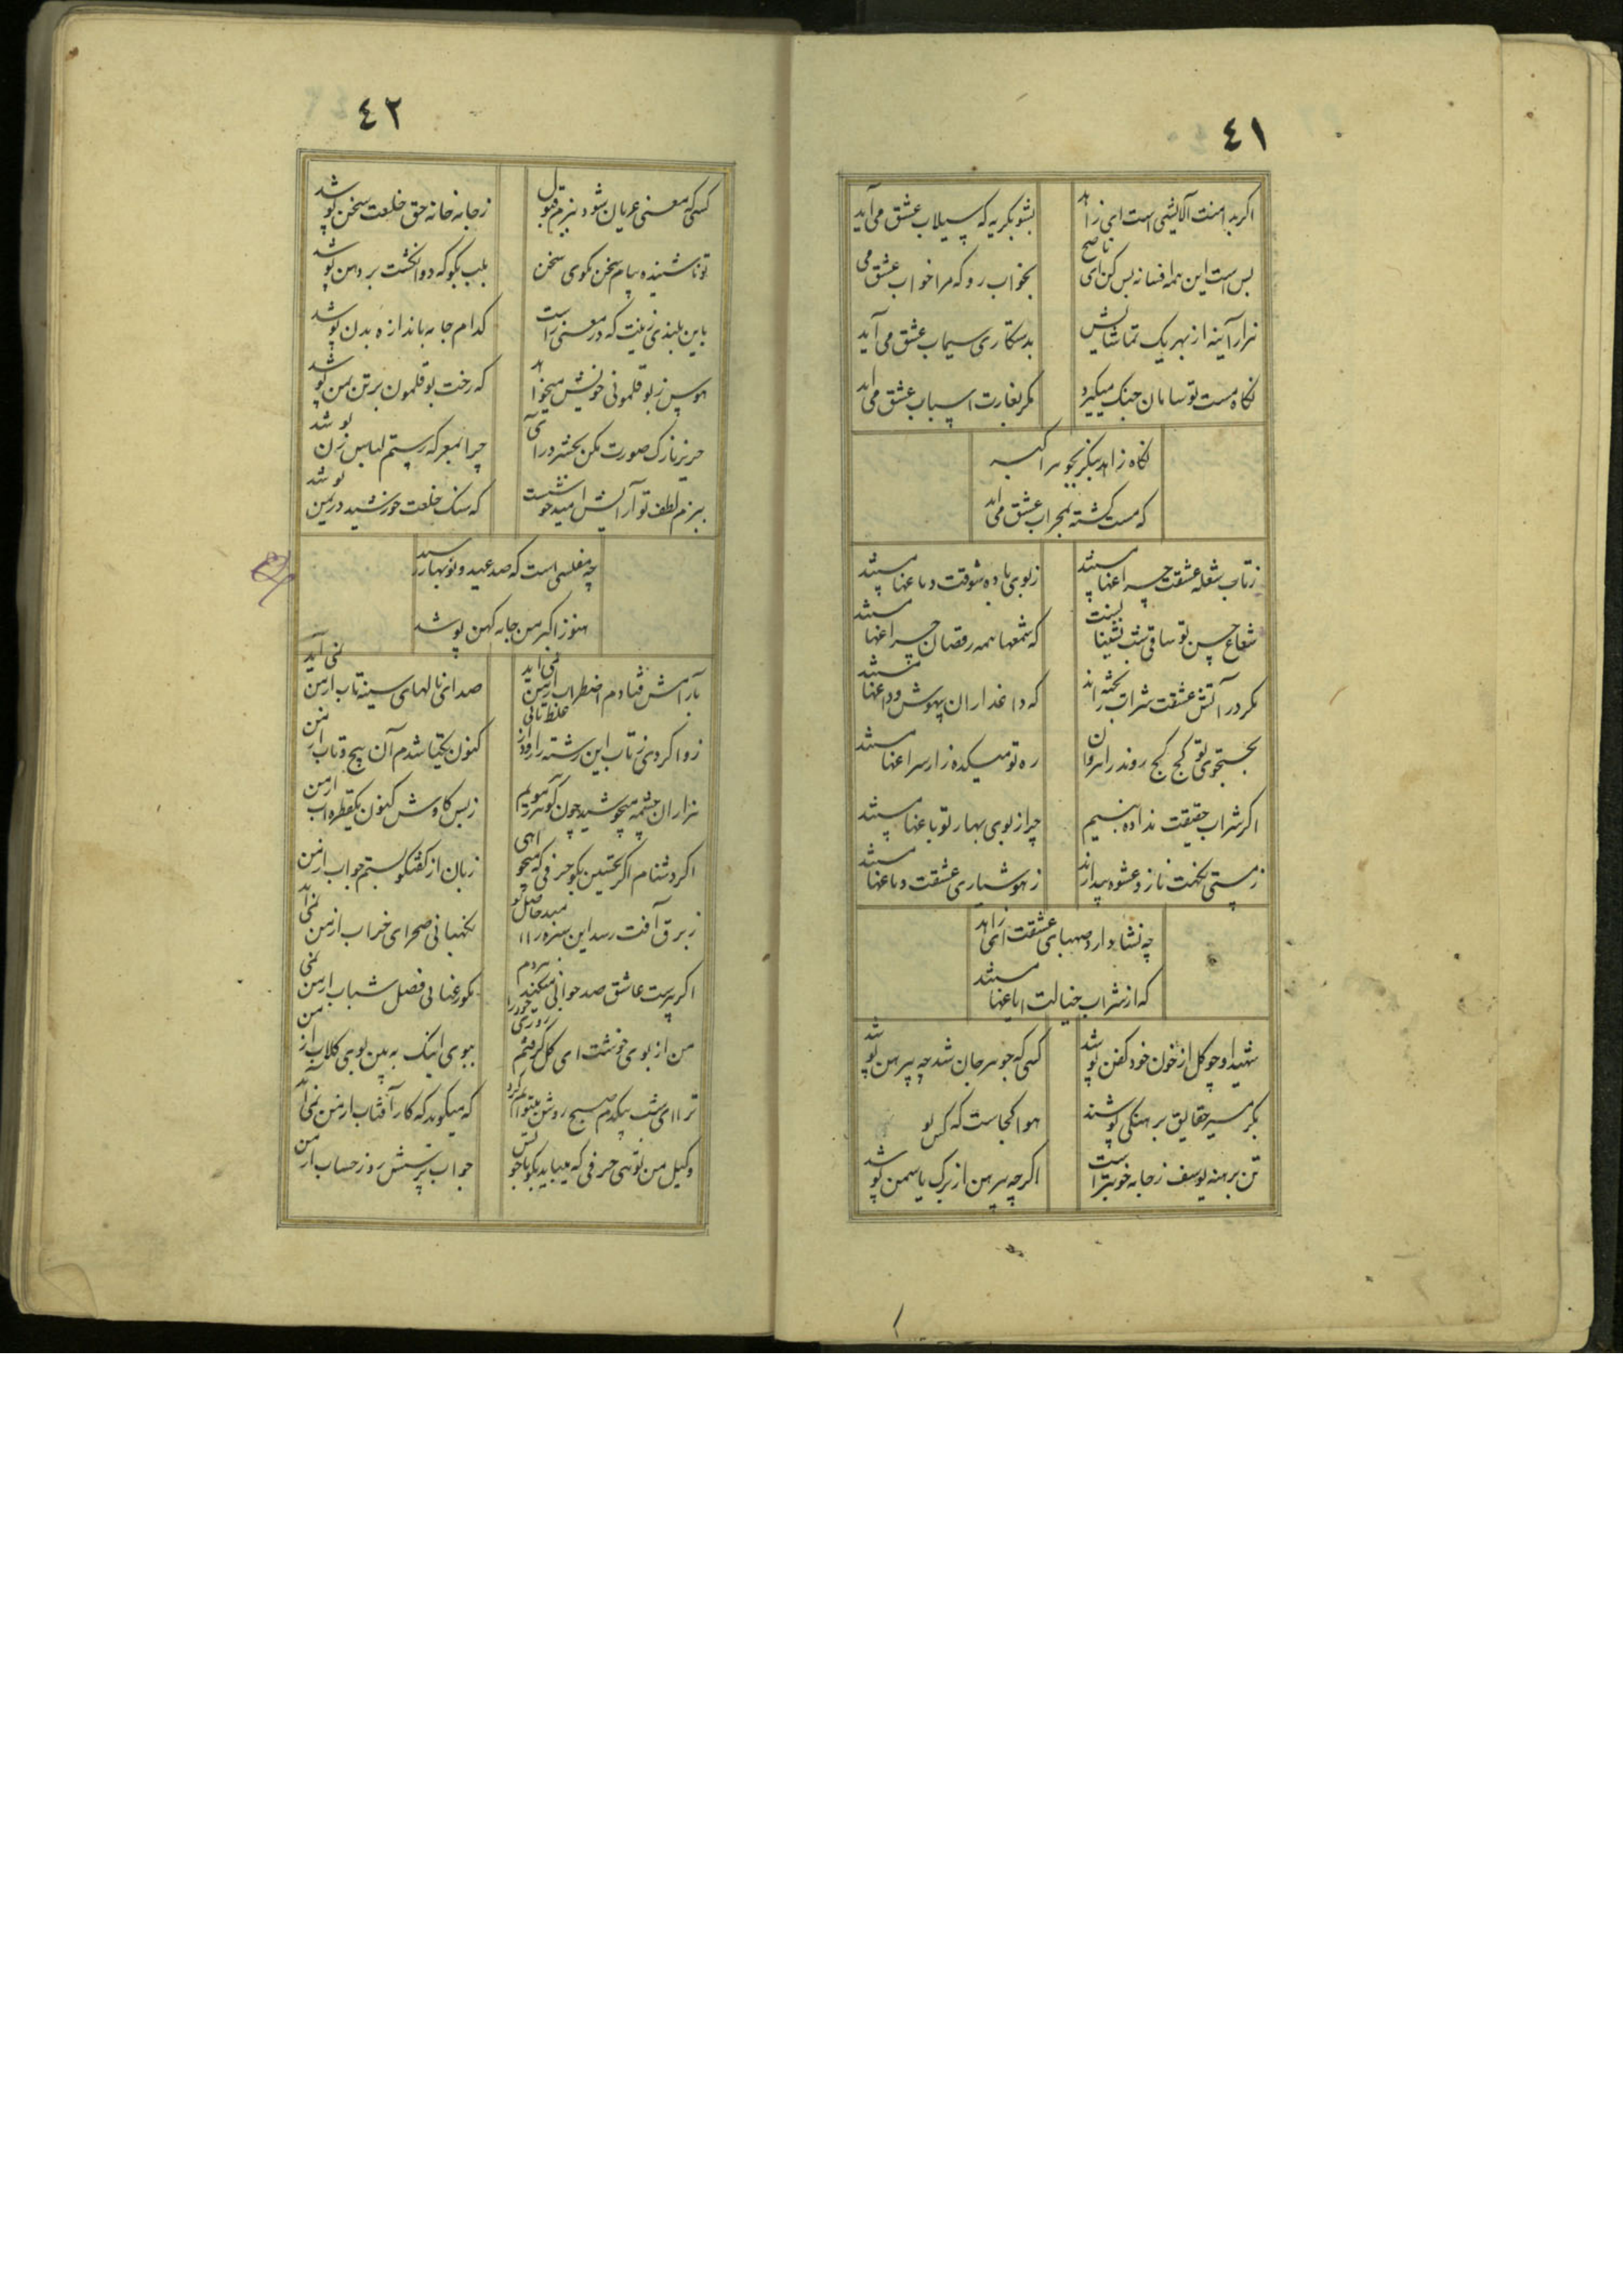 ٤١
اکر بدامنت آلایشی است ای زاهد
بشو بکریه که سیلاب عشق می آید
بس است این همه افسانه بس کن ای ناصح
بخواب رو که مرا خواب عشق می
هزار آینه از بهر یک تماشایش
بدستکاری سیماب عشق می آید
نکاه مست تو سامان جنک میکیرد
مکر بغارت اسباب عشق می اید
نکاه زاهد
که مست کشته بمحراب عشق می اید
زتاب شعله عشقت چراغها مستند
زبوی باده شوقت دماغها مستند
شعاع حسن تو ساقی
که شمعها همه رقصان چراغها مستند
مکر در آتش عشقت شراب
که داغداران بیهوش و داغها مستند
بجستجوی تو کج کج روند راهروان
ره تو میکده زار سراغها مستند
اکر شراب حقیقت نداده نسیم
چرا ز بوی بهار تو باغها مستند
زمستی نکهت ناز و عشوه
زهوشیاری عشقت دماغها مستند
چه نشا دارد صهبای عشقت ای زاهد
که از شراب خیالت ایاغها مستند
شهید او چو کل از خون خود کفن پوشد
کسی که جوهر جان شد چه پیرهن پوشد
بکر مسیر حقایق برهنکی پوشند
هوا کجاست که کس پو
تن برهنه یوسف ز جامه خوبتر است
اکر چه پیرهن از برک یاسمن پوشد
٤٢
کسی که معنی عریان شود ببزم قبول
زجامه خانه حق خلعت سخن پوشد
تو ناشنیده پیام سخن مکوی سخن
بلب بکو که دو انکشت بر دهن پوشد
باین بلندی زینت که در معنی راست
کدام جامه باندازه بدن پوشد
هوس ز بوقلمونی خویش میخواهد
که رخت بوقلمون بر تن من پوشد
حریر نازک صورت مکن
چرا بمعرکه رستم لباس زن پوشد
ببزم لطف تو آرایش امید خوشست
که سنک خلعت خورشید در یمن پوشد
چه مفلسی است که صد عید و نوبهار رسید
هنوز اکبر من جامه کهن پوشد
بآرامش فتادم اضطراب از من نمی اید
صدای نالهای سینه تاب از من نمی آید
ز وا کردی ز تاب این رشته را
کنون یکتا شدم آن پیچ و تاب از من
هزاران چشمه میجوشید چون کوهر
ز بس کاوش کنون یکقطره اب از من
اکر دشنام اکر تحسین بکو حرفی که میخواهی
زبان از کفتکو بستم جواب از من
ز برق آفت رسد این سبزه را
نکهبانی صحرای خراب از من نمی آید
اکر پیرست عاشق صد جوانی میکند هردم
مکو رعنایی فصل شباب از من نمی
من از بوی خوشت ای کل
ببوی اینک به بین بوی کلاب از من
ترا ای شب بیکدم صبح روشن میتوانم کرد
که میکوید که کار آفتاب از من نمی آید
وکیل من توئی حرفی که میباید بکو
جواب پرسش روز حساب از من